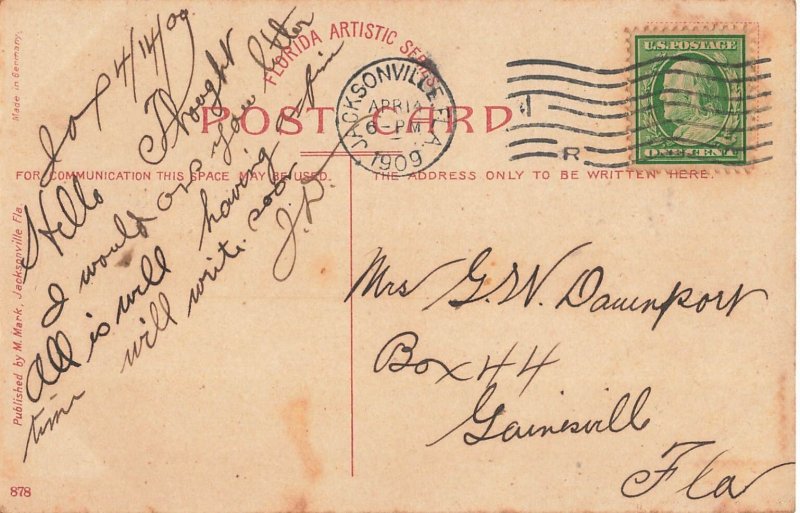 FLORIDA ARTISTIC SERIES
POST CARD
FOR COMMUNICATION THIS SPACE MAY BE USED.
THE ADDRESS ONLY TO BE WRITTEN HERE.
Made in Germany.
Published by M. Mark, Jacksonville Fla
878
JACKSONVILLE, FLA.
APR 14
6 - PM
1909
1
R
U.S. POSTAGE
ONE CENT
Jax 4/14/09
Hello Thought
I would ans your letter
all is well having a fine
time will write soon
J.D.
Mrs G.W. Davenport
Box 44
Gainesville
Fla